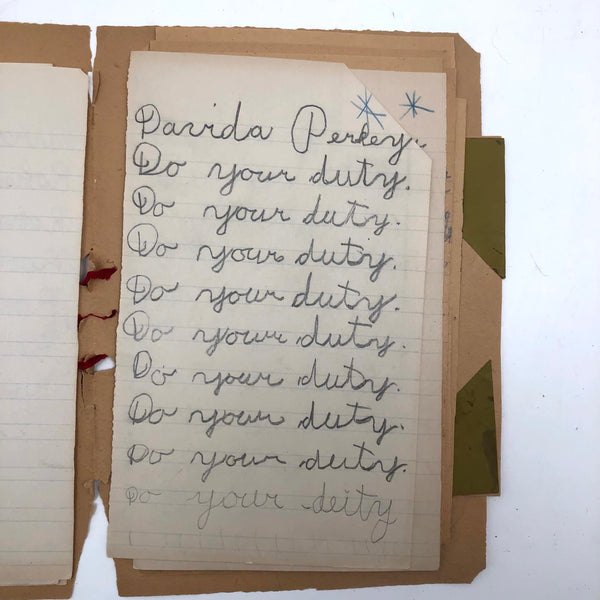 Davida Perkey.
Do your duty.
Do your duty.
Do your duty.
Do your duty.
Do your duty.
Do your duty.
Do your duty.
Do your duty.
Do your deity